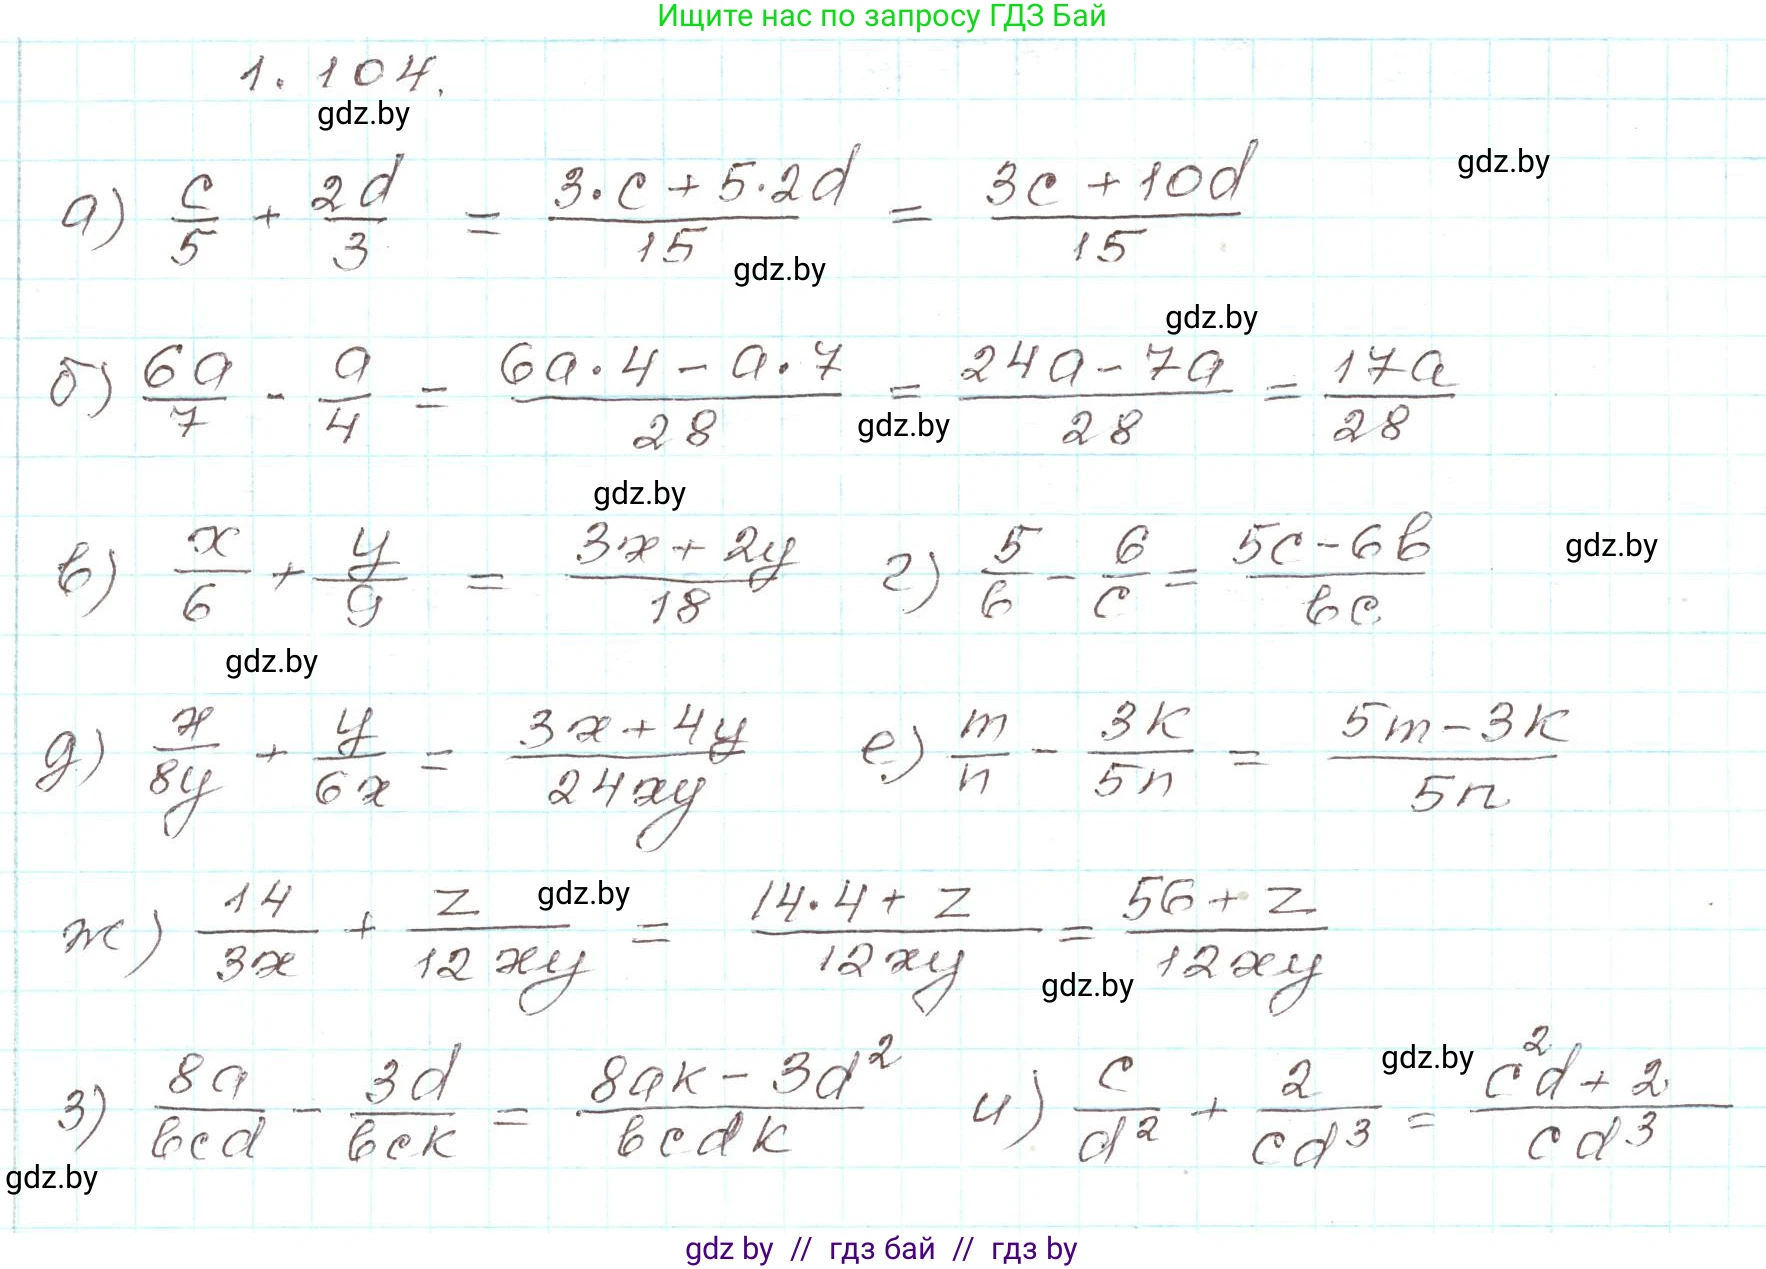 Ищите нас по запросу ГДЗ Бай
1.104.
gdz.by
gdz.by
а) c/5 + 2d/3 = (3·c + 5·2d)/15 = (3c + 10d)/15
gdz.by
gdz.by
б) 6a/7 - a/4 = (6a·4 - a·7)/28 = (24a - 7a)/28 = 17a/28
gdz.by
gdz.by
в) x/6 + y/9 = (3x + 2y)/18 г) 5/b - 6/c = (5c - 6b)/bc
gdz.by
gdz.by
д) x/8y + y/6x = (3x + 4y)/24xy е) m/n - 3k/5n = (5m - 3k)/5n
gdz.by
ж) 14/3x + z/12xy = (14·4 + z)/12xy = (56 + z)/12xy
gdz.by
gdz.by
з) 8a/bcd - 3d/bck = (8ak - 3d²)/bcdk и) c/d² + 2/cd³ = (c²d + 2)/cd³
gdz.by
gdz by // гдз бай // гдз by